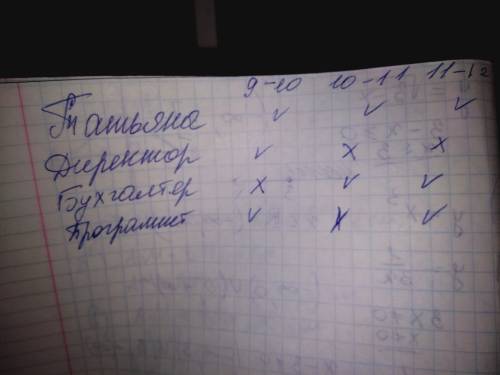 9-10 10-11 11-12
Татьяна ✓ ✓ ✓
Директор ✓ x x
Бухгалтер x ✓ ✓
Программист ✓ x ✓